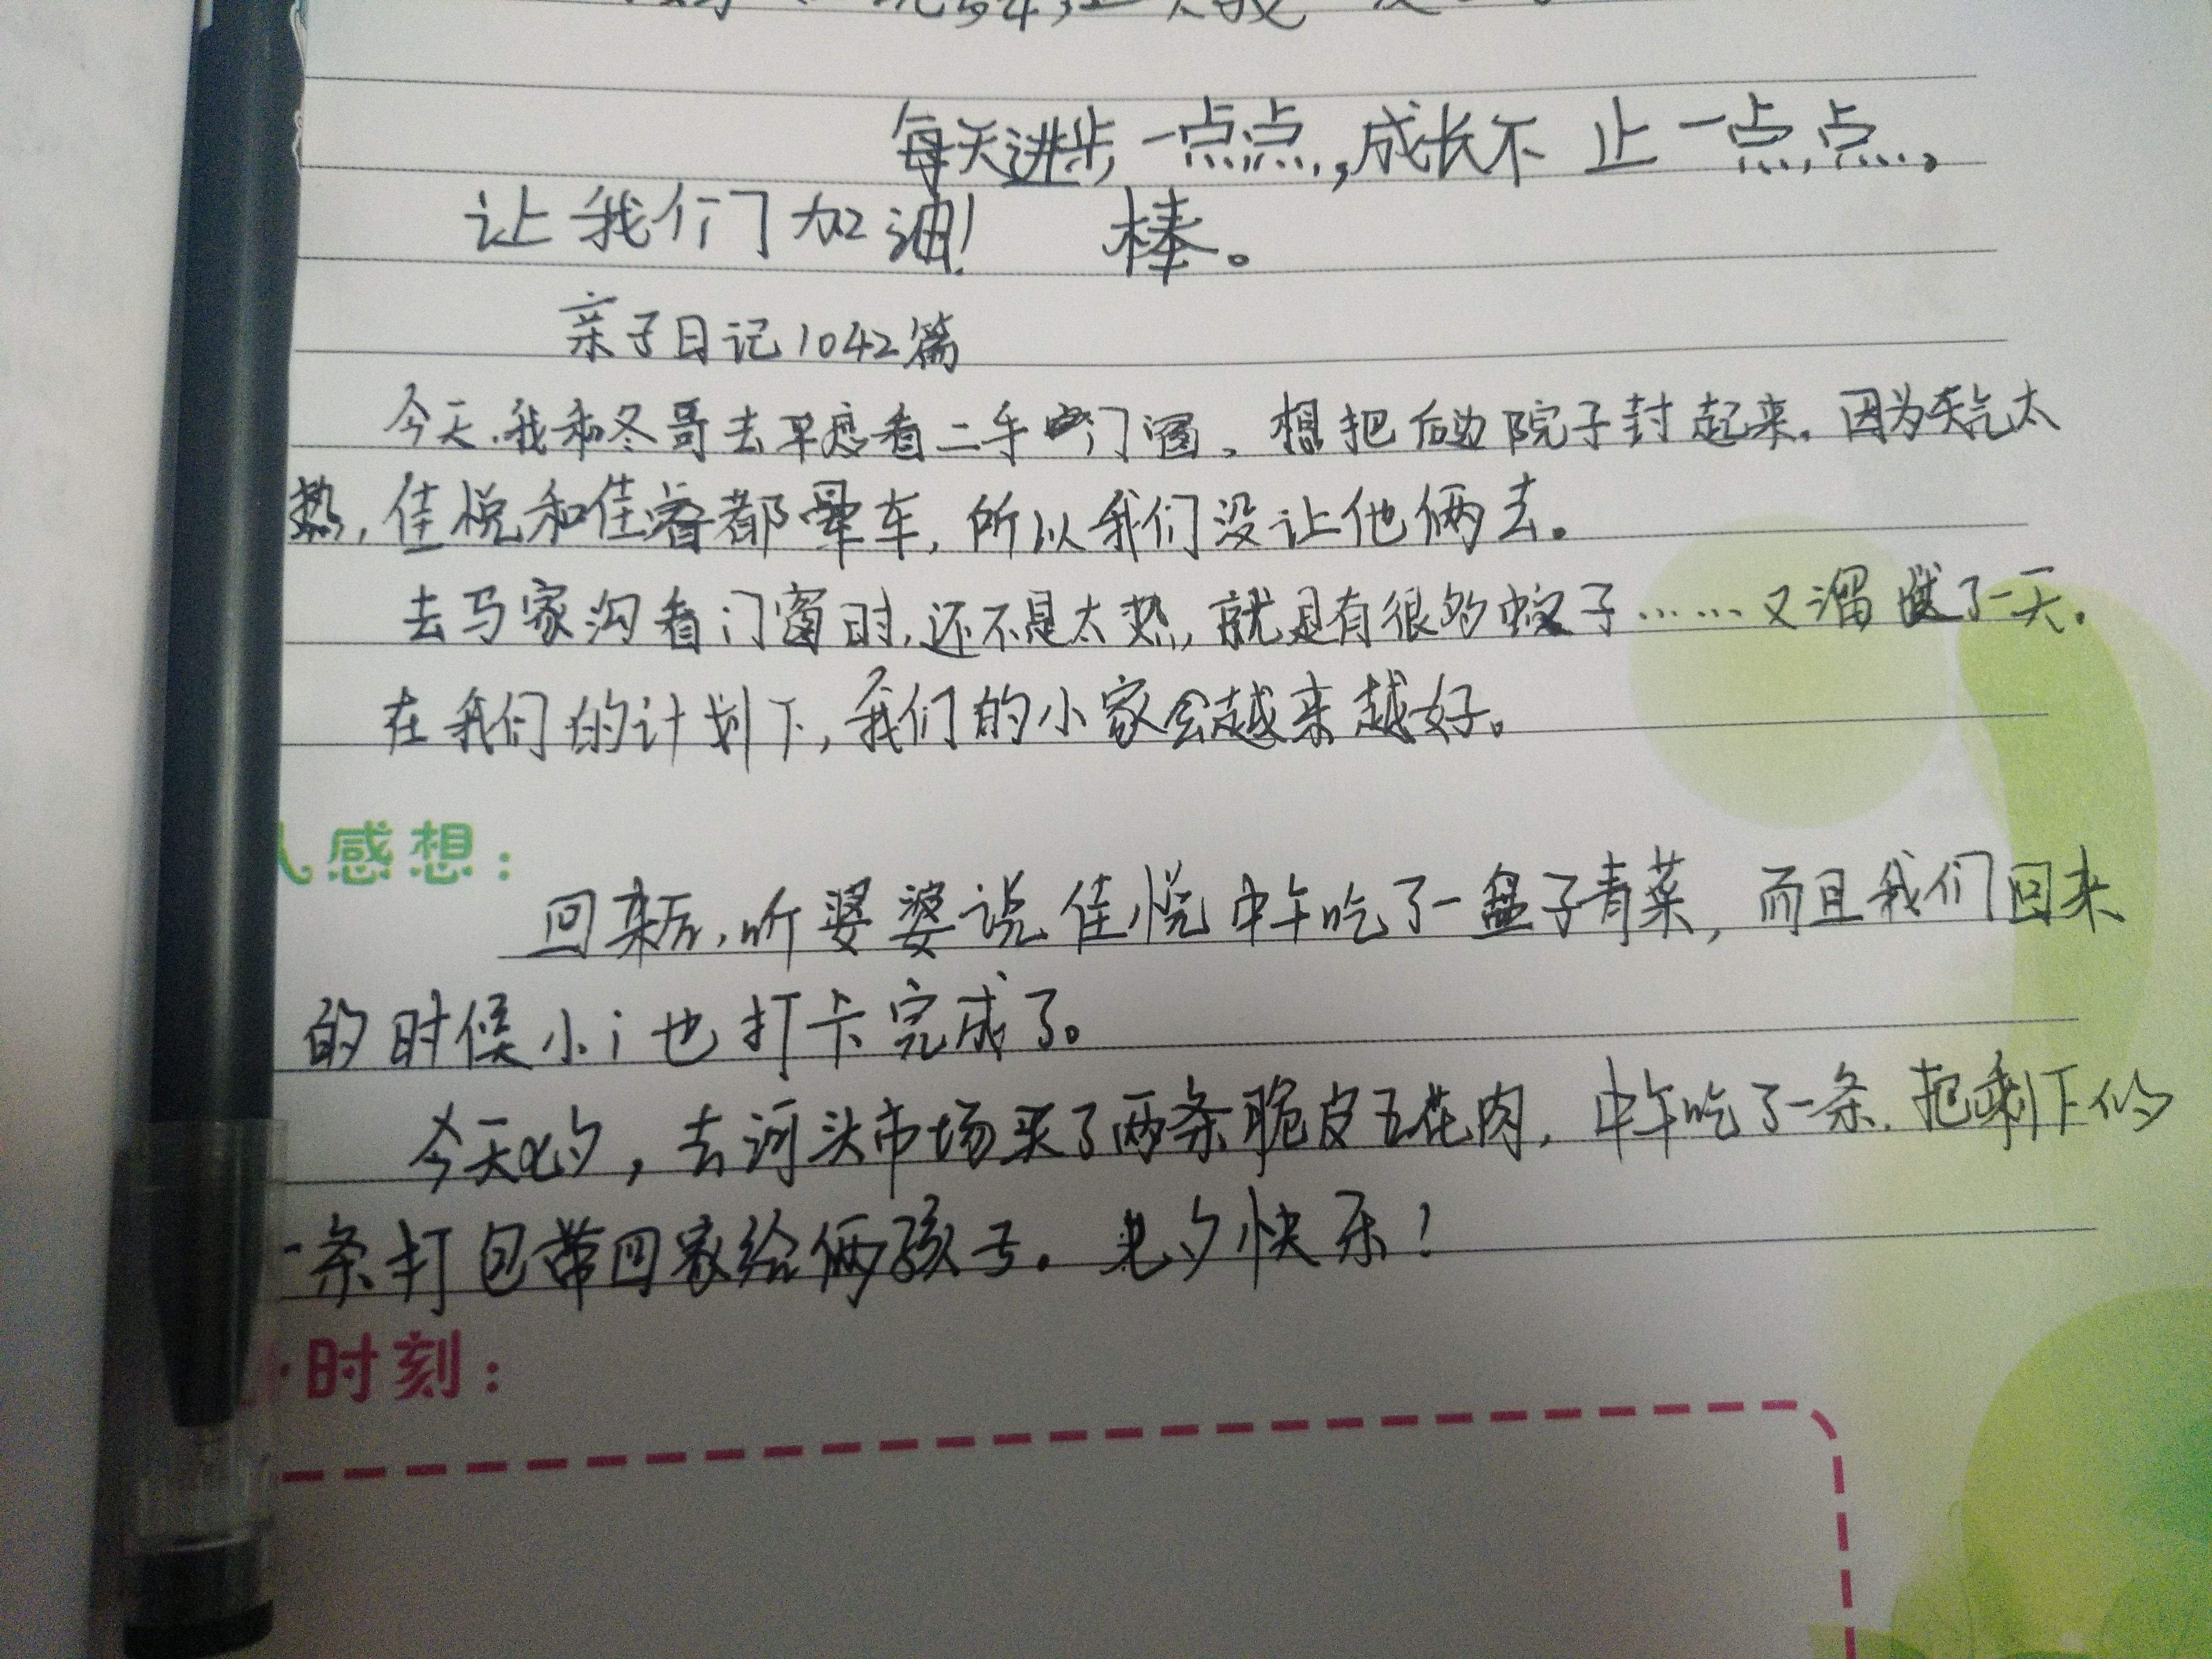 每天进步一点点,成长不止一点点。
让我们加油! 棒。
亲子日记1042篇
今天,我和冬哥去平度看二手门窗。想把后边院子封起来。因为天气太
热,佳悦和佳睿都晕车,所以我们没让他俩去。
去马家沟看门窗时,还不是太热,就是有很多蚊子……又溜达了一天。
在我们的计划下,我们的小家会越来越好。
人感想:
回来后,听婆婆说佳悦中午吃了一盘子青菜,而且我们回来
的时候小i也打卡完成了。
今天七夕,去河头市场买了两条脆皮五花肉,中午吃了一条,把剩下的
一条打包带回家给俩孩子。七夕快乐!
时刻: